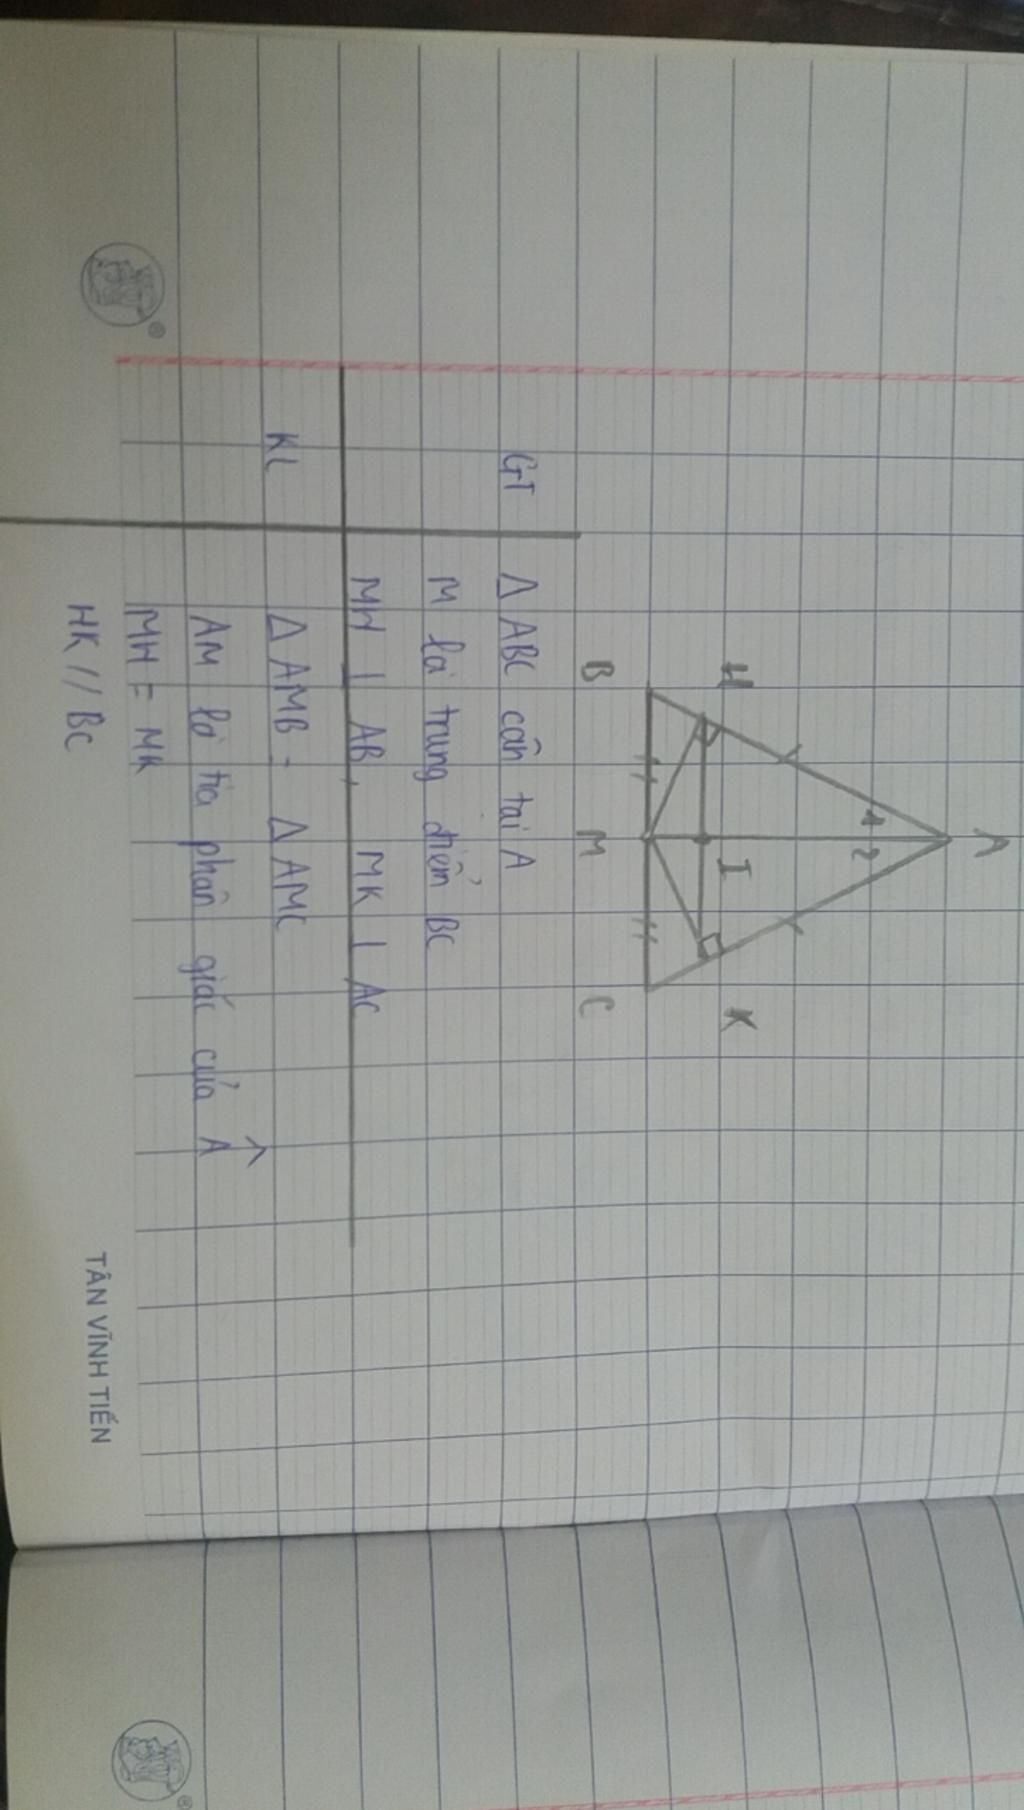 A
1 2
H I K
B M C
GT Δ ABC cân tại A
M là trung điểm BC
MH ⊥ AB, MK ⊥ AC
KL Δ AMB = Δ AMC
AM là tia phân giác của Â
MH = MK
HK // BC
TÂN VĨNH TIẾN
®
®